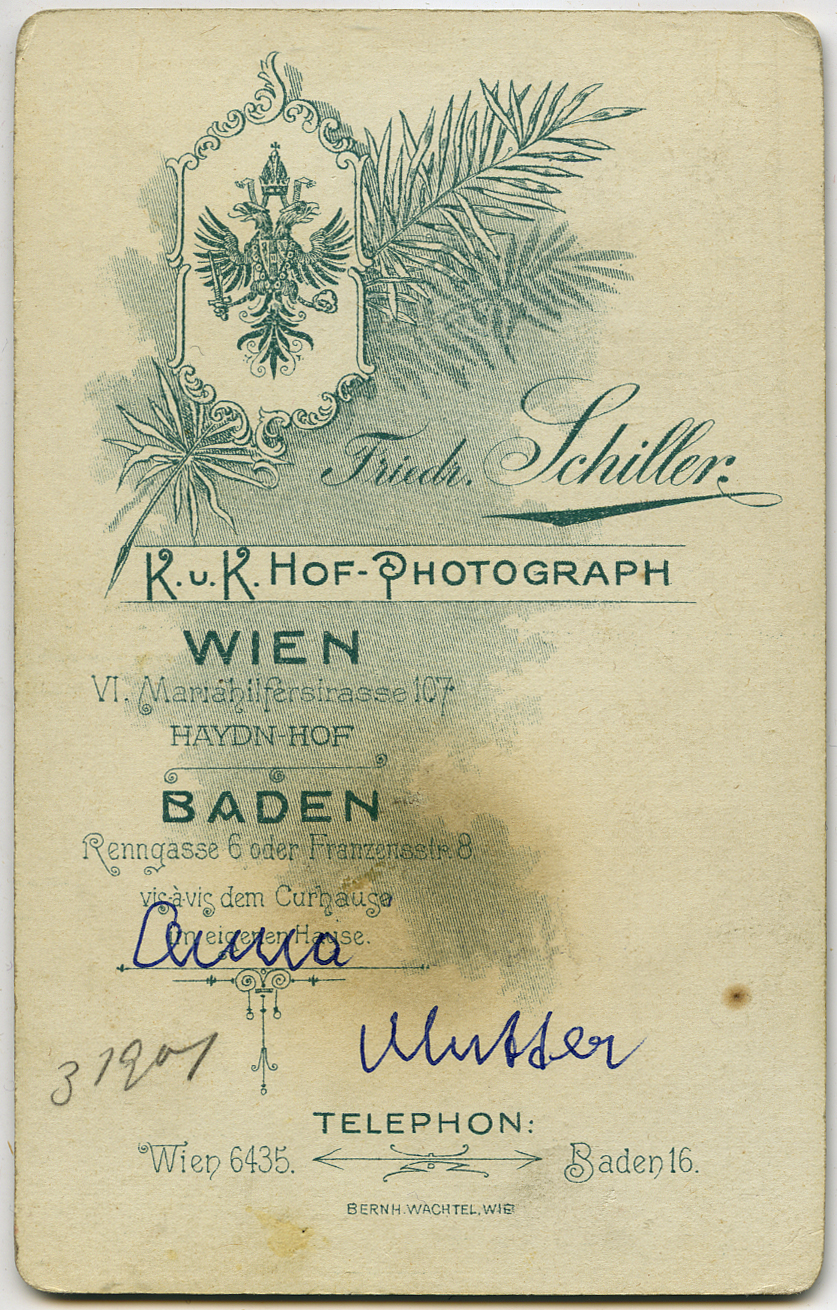 Friedr. Schiller.
K. u. K. HOF-PHOTOGRAPH
WIEN
VI. Mariahilferstrasse 107
HAYDN-HOF
BADEN
Renngasse 6 oder Franzensstr. 8
vis-à-vis dem Curhause
im eigenen Hause.
Anna
Mutter
3 1901
TELEPHON:
Wien 6435. Baden 16.
BERNH. WACHTEL, WIEN